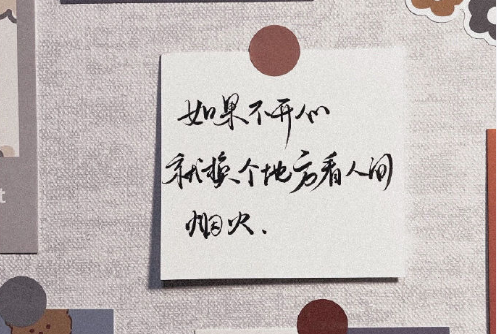 如果不开心
就换个地方看人间
烟火.
t